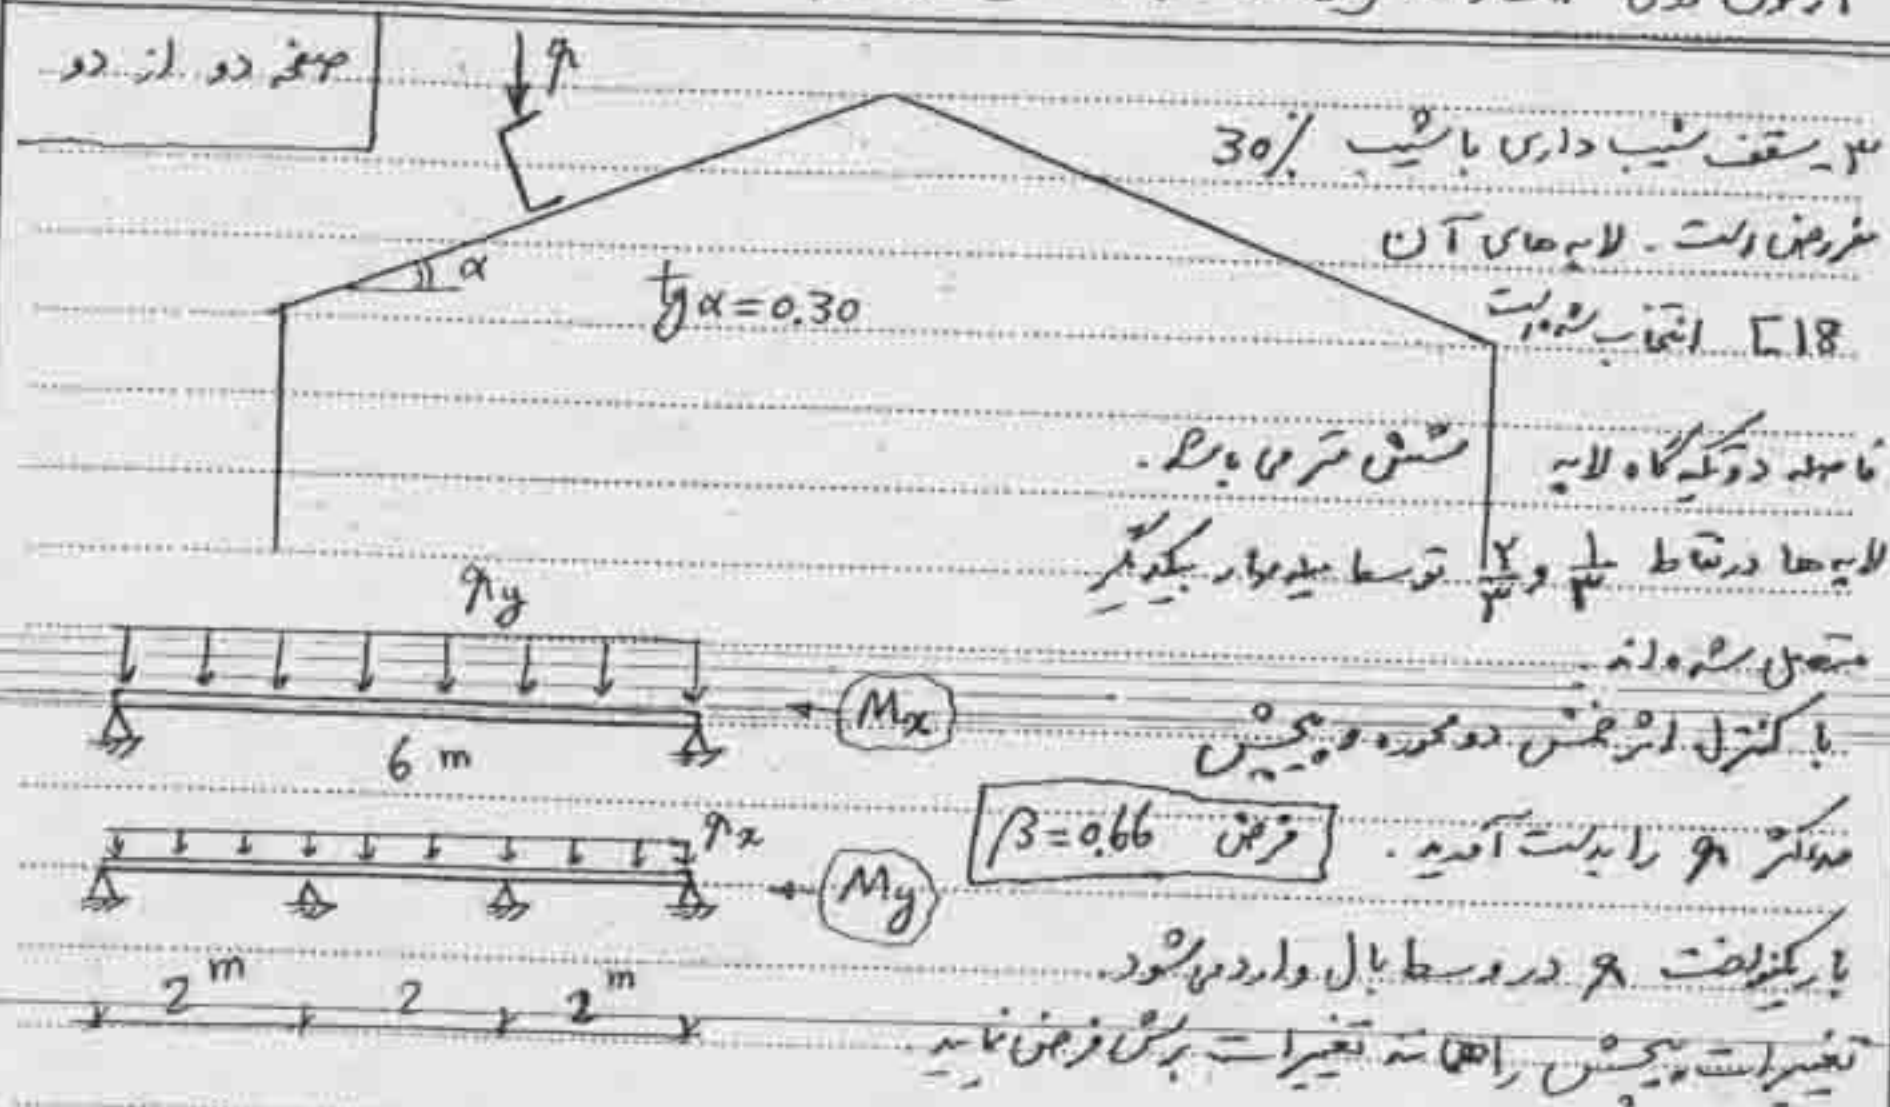 صفحه دو از دو
q
۳- سقف شیب داری با شیب 30%
مفروض است. لاپه های آن
[18 انتخاب شده است
α
tgα=0.30
فاصله دو تکیه گاه لاپه شش متر می باشد.
لاپه ها در نقاط ۱/۳ و ۲/۳ توسط میله مهار بیکدیگر
متصل شده اند.
qy
Mx
6 m
با کنترل اثر خمش دو محوره و پیچش
حداکثر q را بدست آورید.
فرض β=0.66
qx
My
بار یکنواخت q در وسط بال وارد می شود.
2 m 2 2 m
تغییرات پیچش را همانند تغییرات برش فرض نمایید